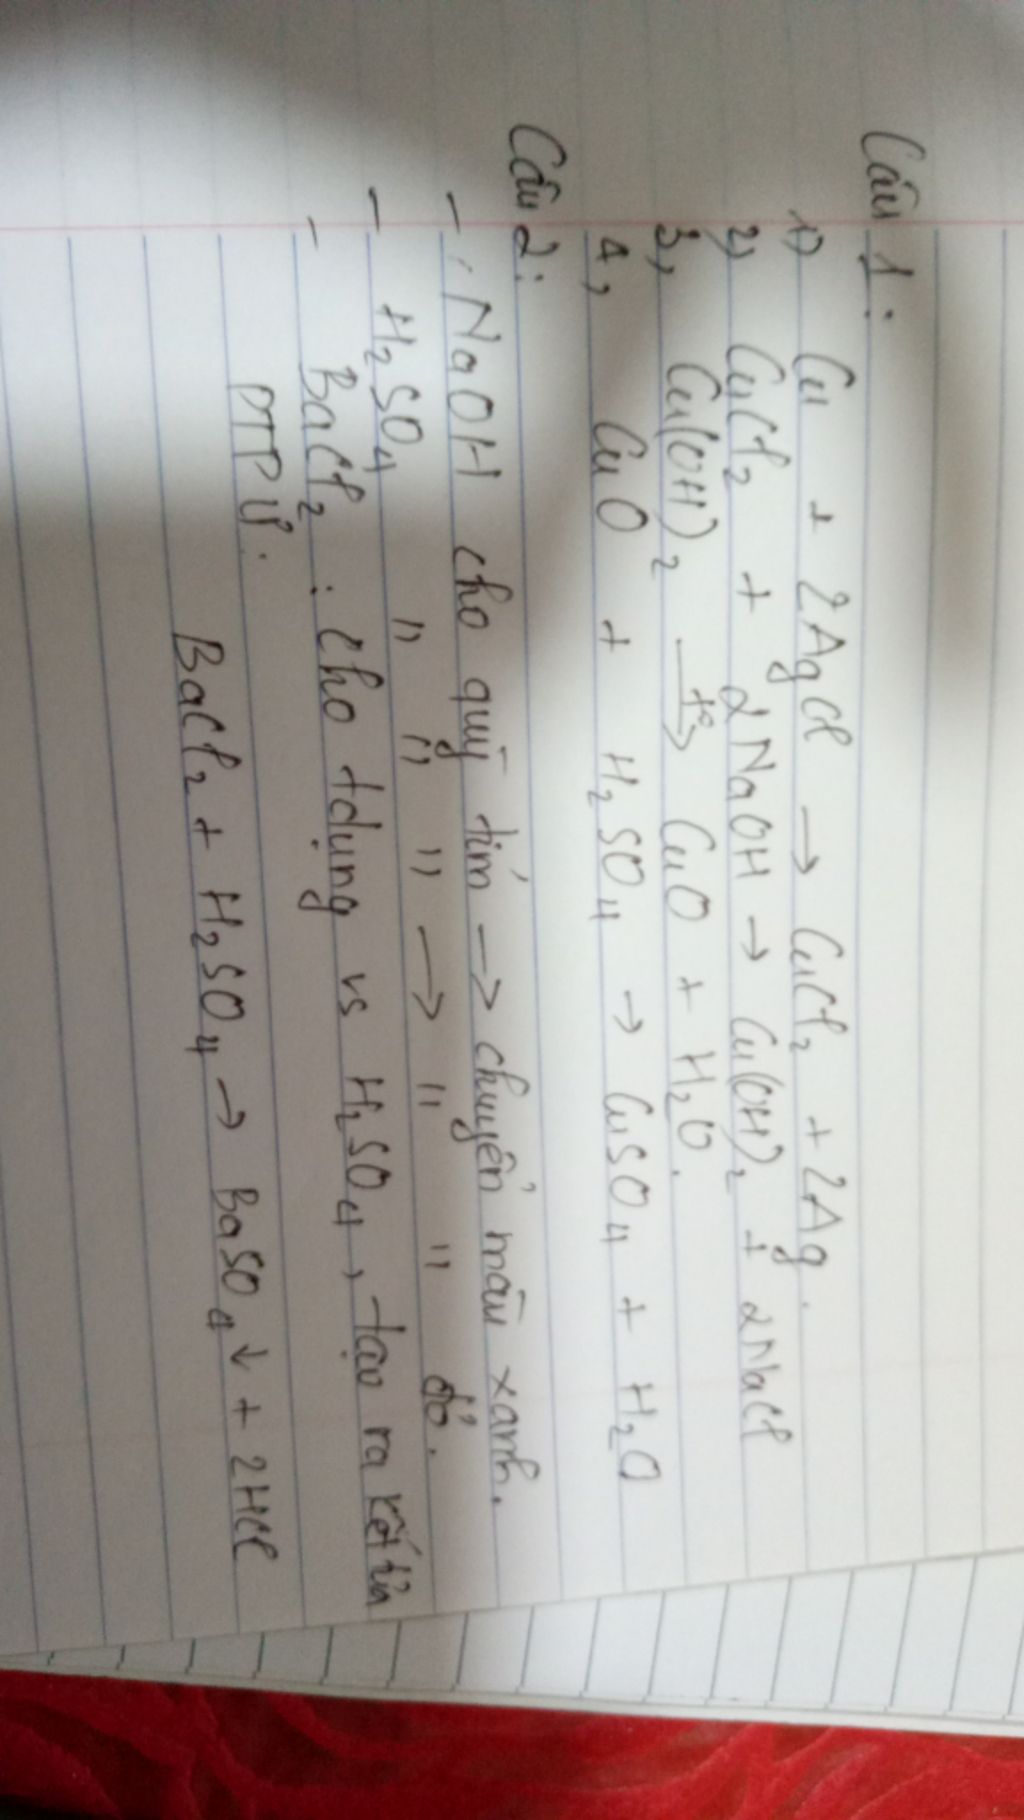 Câu 1:
1) Cu + 2AgCl → CuCl₂ + 2Ag.
2) CuCl₂ + 2NaOH → Cu(OH)₂ + 2NaCl
3, Cu(OH)₂ —t°→ CuO + H₂O.
4, CuO + H₂SO₄ → CuSO₄ + H₂O
Câu 2:
- NaOH cho quỳ tím → chuyển màu xanh.
- H₂SO₄ " " " → " " đỏ.
- BaCl₂ : cho tdụng vs H₂SO₄, tạo ra kết tủa
PTPƯ.
BaCl₂ + H₂SO₄ → BaSO₄↓ + 2HCl